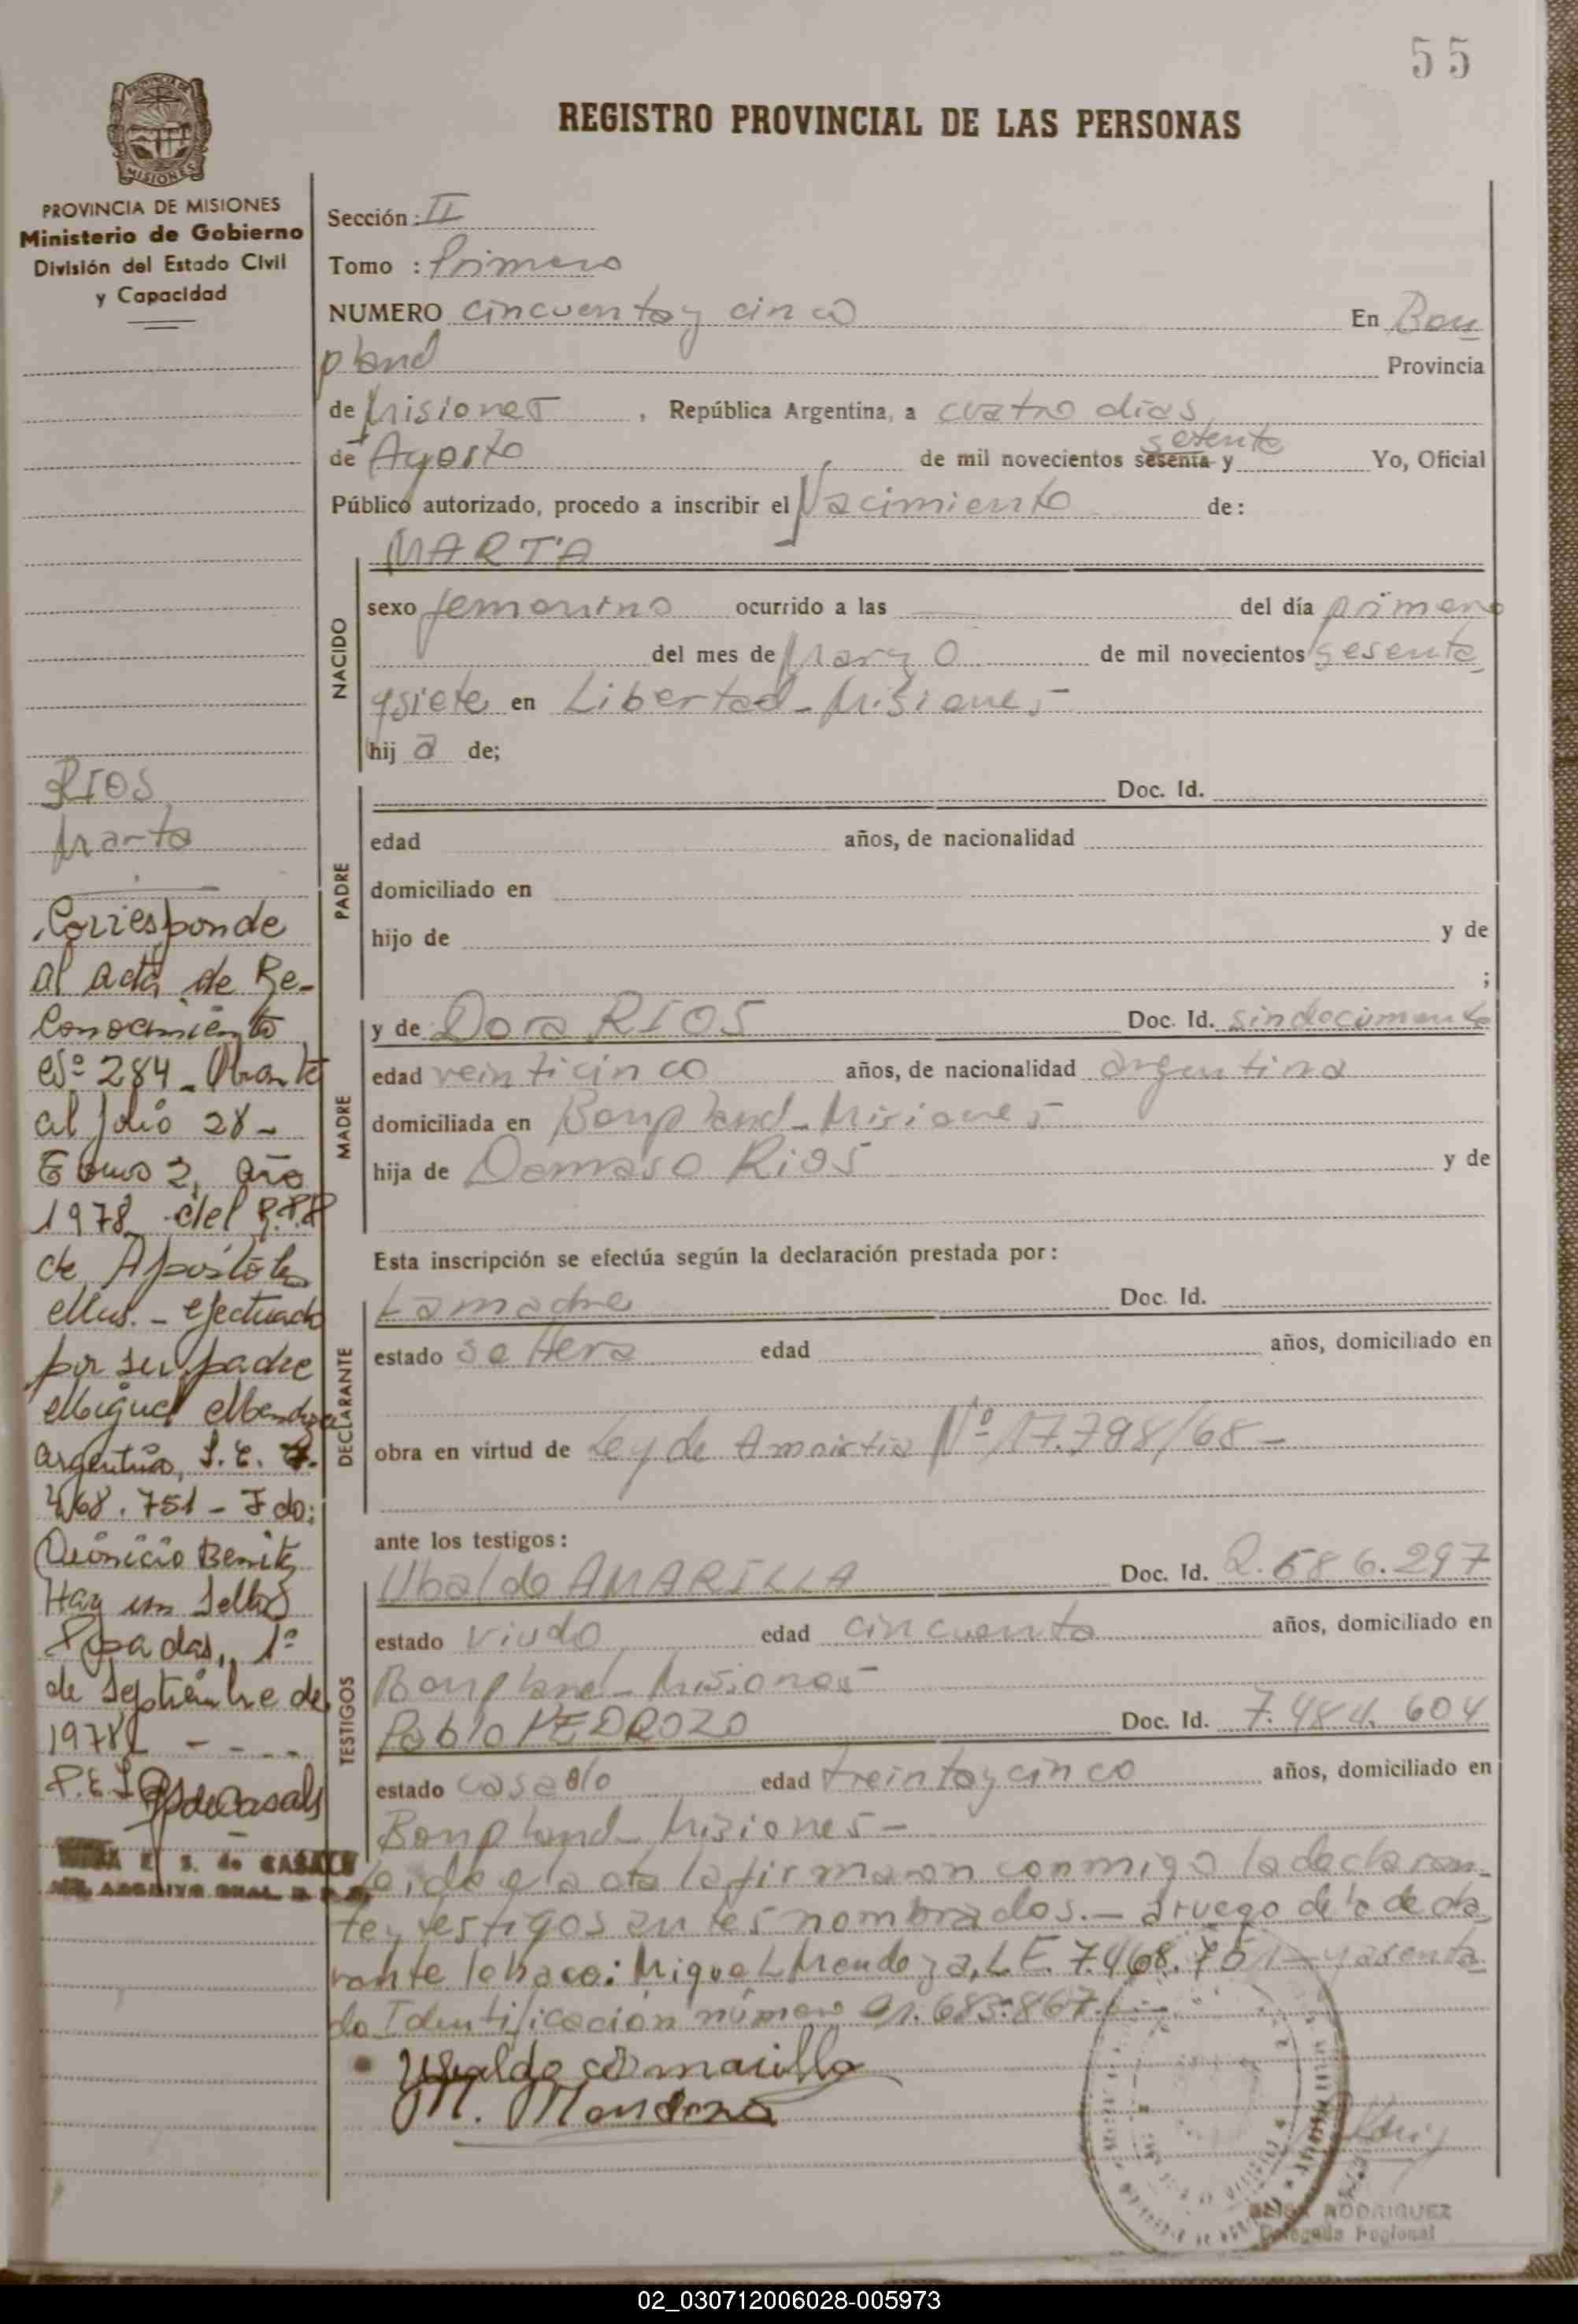 55
REGISTRO PROVINCIAL DE LAS PERSONAS
PROVINCIA DE MISIONES
PROVINCIA DE MISIONES
Ministerio de Gobierno
División del Estado Civil
y Capacidad
Sección: II
Tomo : Primero
NUMERO cincuenta y cinco En Bon
pland Provincia
de Misiones , República Argentina, a cuatro dias
de Agosto de mil novecientos sesenta y setenta Yo, Oficial
Público autorizado, procedo a inscribir el Nacimiento de:
MARTA
NACIDO
sexo femenino ocurrido a las del día primero
del mes de Marzo de mil novecientos sesenta
y siete en Libertad - Misiones -
hij a de;
PADRE
Doc. Id.
edad años, de nacionalidad
domiciliado en
hijo de y de
;
MADRE
y de Dora RIOS Doc. Id. sin documento
edad veinticinco años, de nacionalidad argentina
domiciliada en Bonpland - Misiones
hija de Damaso Rios y de
Esta inscripción se efectúa según la declaración prestada por:
DECLARANTE
La madre Doc. Id.
estado soltera edad años, domiciliado en
obra en virtud de Ley de Amnistia Nº 17.798/68 -
ante los testigos:
TESTIGOS
Ubaldo AMARILLA Doc. Id. 2.686.297
estado viudo edad cincuenta años, domiciliado en
Bonpland - Misiones -
Pablo PEDROZO Doc. Id. 7.484.604
estado casado edad treinta y cinco años, domiciliado en
Bonpland - Misiones -
Leida el acta la firmaron conmigo la declaran-
te y testigos antes nombrados. - A ruego de la decla
rante lo hace: Miguel Mendoza, L.E. 7.468.751 - y asenta
do Identificación número 01.683.867.-
Ubaldo Amarilla
M. Mendoza
RODRIGUEZ
Delegada Regional
RIOS
Marta
Corresponde
al acta de Re-
conocimiento
Nº 284 - Obrante
al folio 28 -
Tomo 2, año
1978 del R.P.P
de Apóstoles
Mns. - efectuado
por su padre
Miguel Mendoza
argentino, L.E. 7.
468.751 - Fdo:
Dionicio Benitez
Hay un Sello
Posadas, 1º
de Septiembre de
1978 - - - -
E. S. de CASALS
ARCHIVO GRAL. R. P. P.
02_030712006028-005973